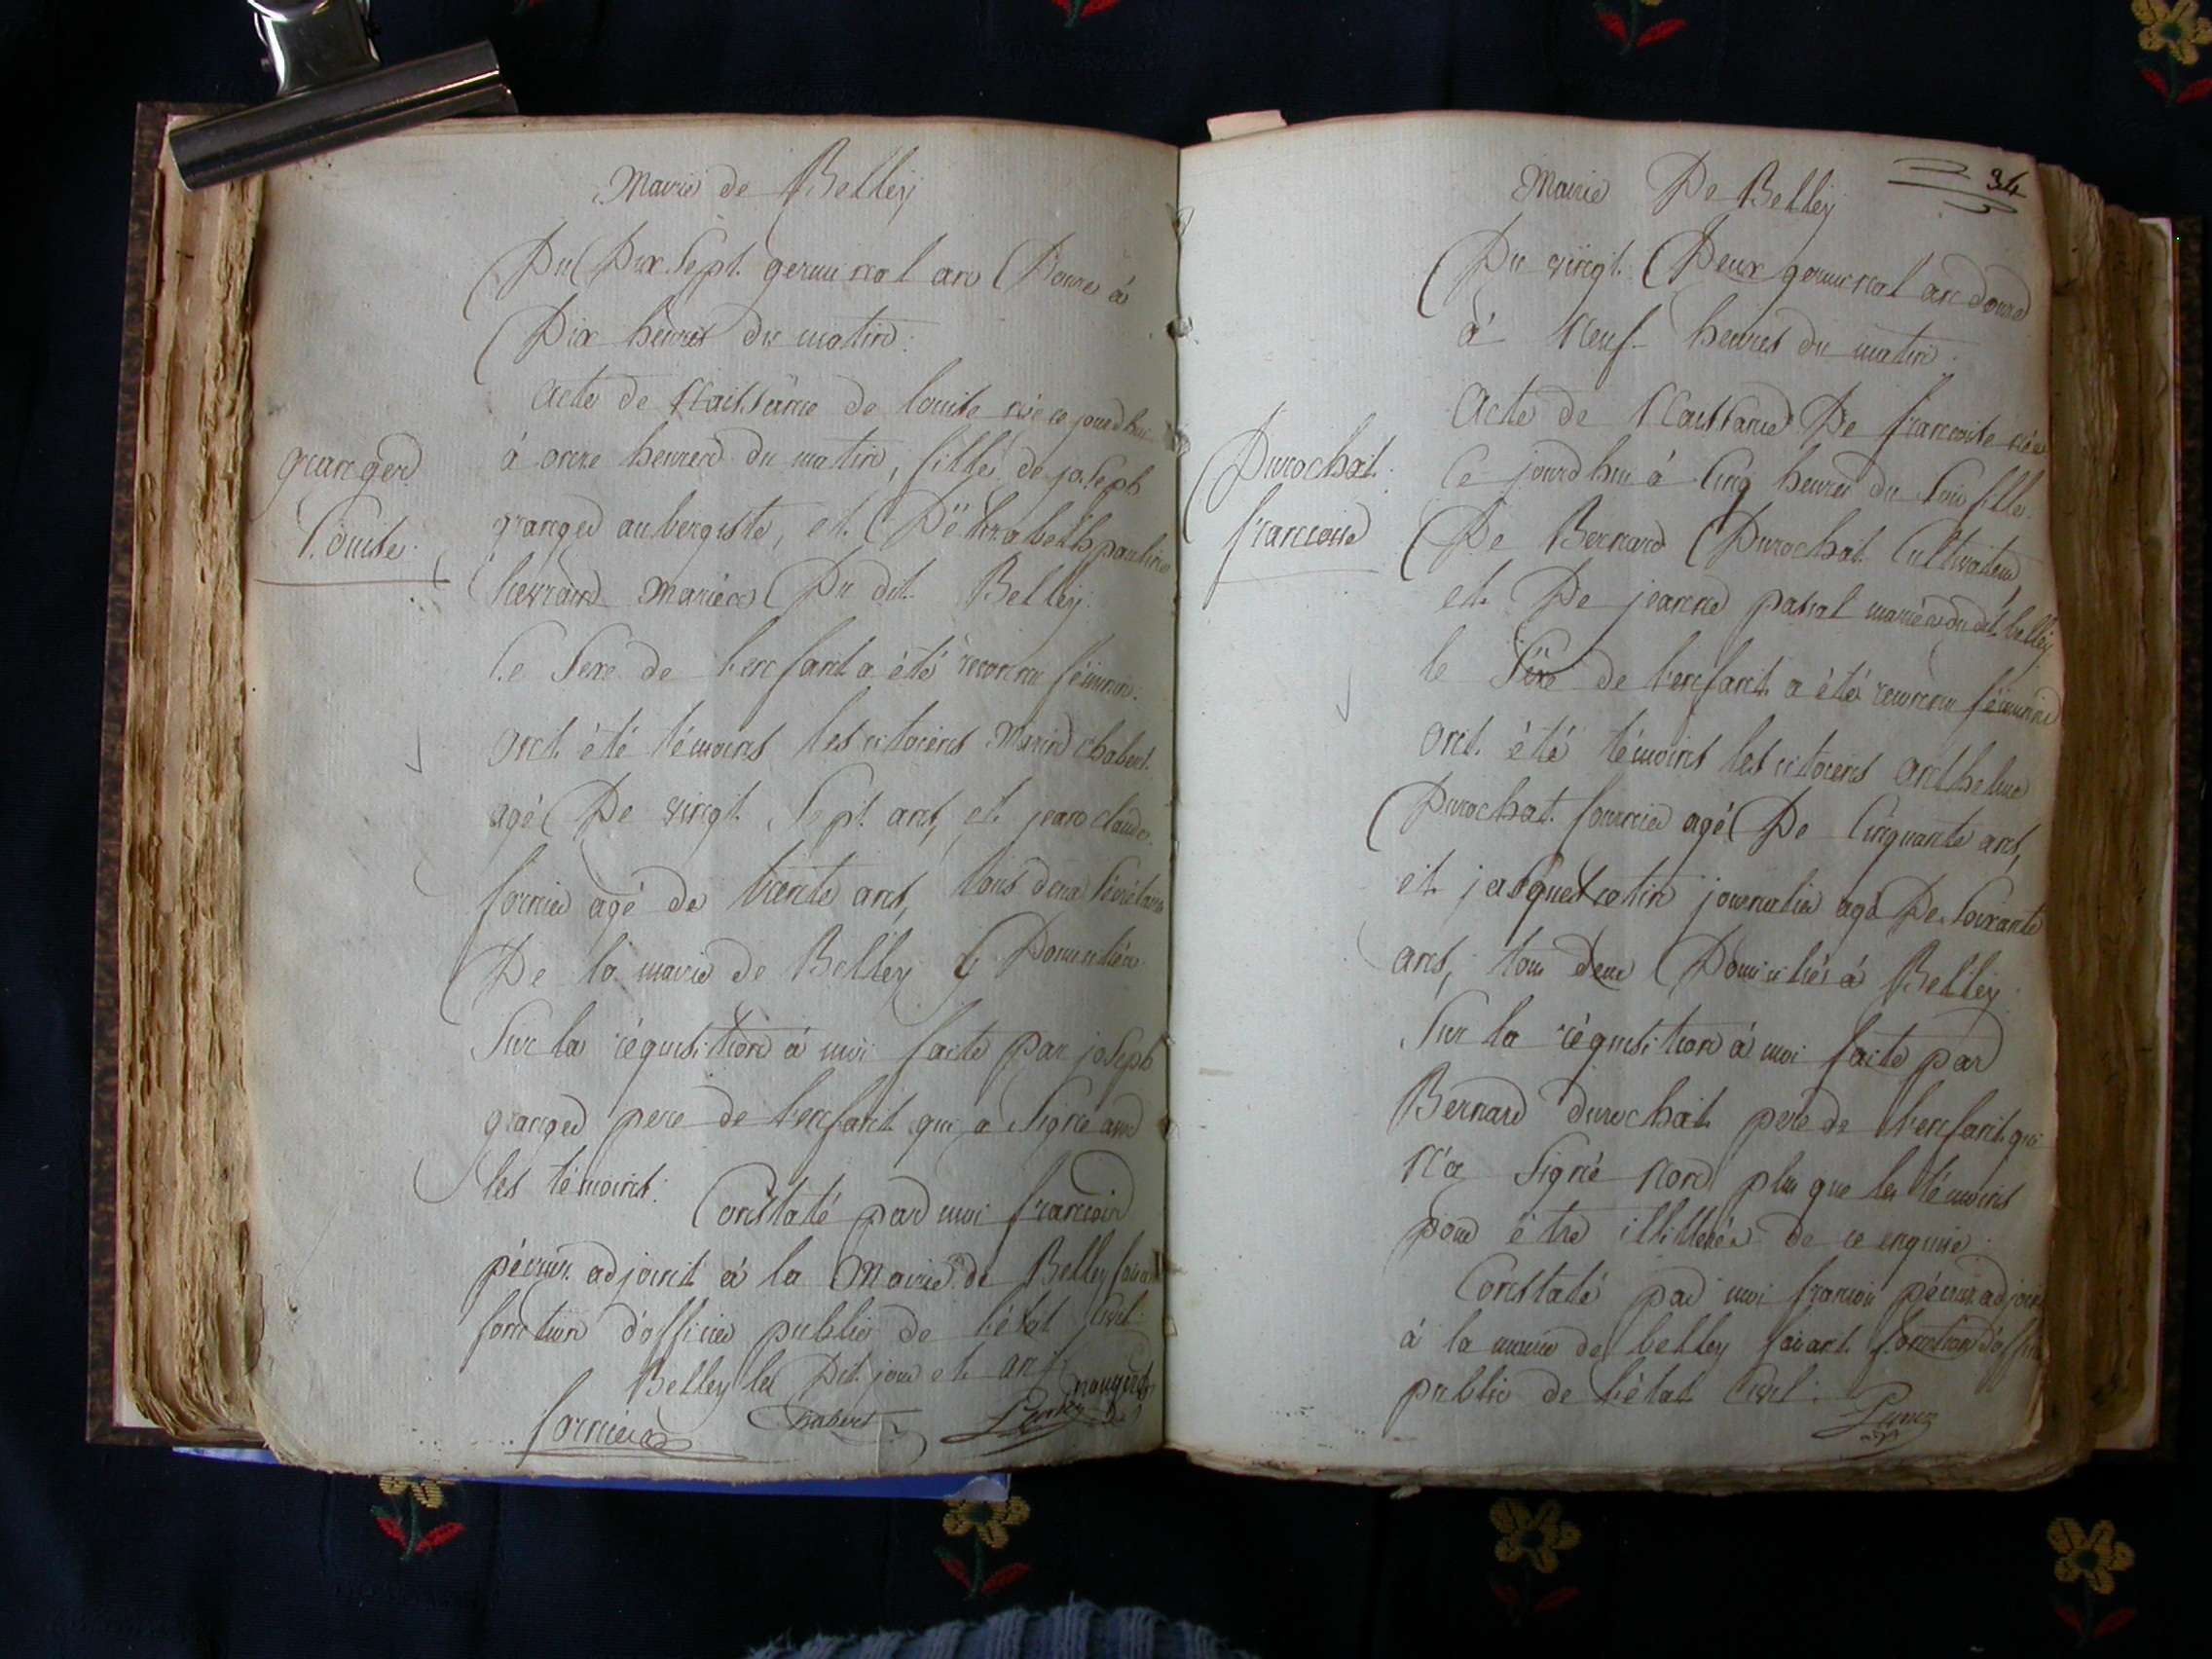 Mairie de Belley
Du Dix Sept germinal an Douze à
Dix heures du matin.
acte de Naissance de louise née ce jourd'hui
granger
Louise
à onze heures du matin, fille de joseph
granger aubergiste, et D'Elizabeth pauline
mariés Du dit Belley.
Le Sexe de l'enfant a été reconnu féminin.
ont été témoins les citoiens Marin chabert
agé De vingt Sept ans, et jean claude
fornier agé de trente ans, tous deux Sécrétaires
De la mairie de Belley y Domiciliés.
Sur la réquisition à moi faite par joseph
granger pere de l'enfant qui a Signé avec
les témoins. Constaté par moi françois
adjoint à la Mairie de Belley faisant
fonction d'officier public de l'état civil.
Belley les Dit jour et an
fornier chabert
34
Mairie De Belley
Du vingt Deux germinal an douze
à Neuf heures du matin.
Acte de Naissance De francoise née
Durochat
francoise
Ce jourd'hui à Cinq heures du Soir fille
De Bernard Durochat Cultivateur
et De jeanne pascal mariés du dit belley
le Sexe de l'enfant a été reconnu féminin
ont été témoins les citoiens anthelme
Durochat fournier agé De Cinquante ans,
et jacques journalier agé De Soixante
ans, tous deux Domiciliés à Belley
Sur la réquisition à moi faite par
Bernard durochat pere de l'enfant qui
N'a Signé Non plus que les témoins
pour être illitterés de ce enquis.
Constaté par moi francois adjoint
à la mairie de belley faisant fonction d'officier
public de l'état civil.